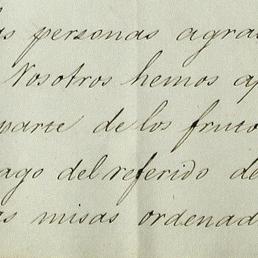 as personas agra
Nosotros hemos ap
parte de los fruto
ago del referido de
as misas ordenad